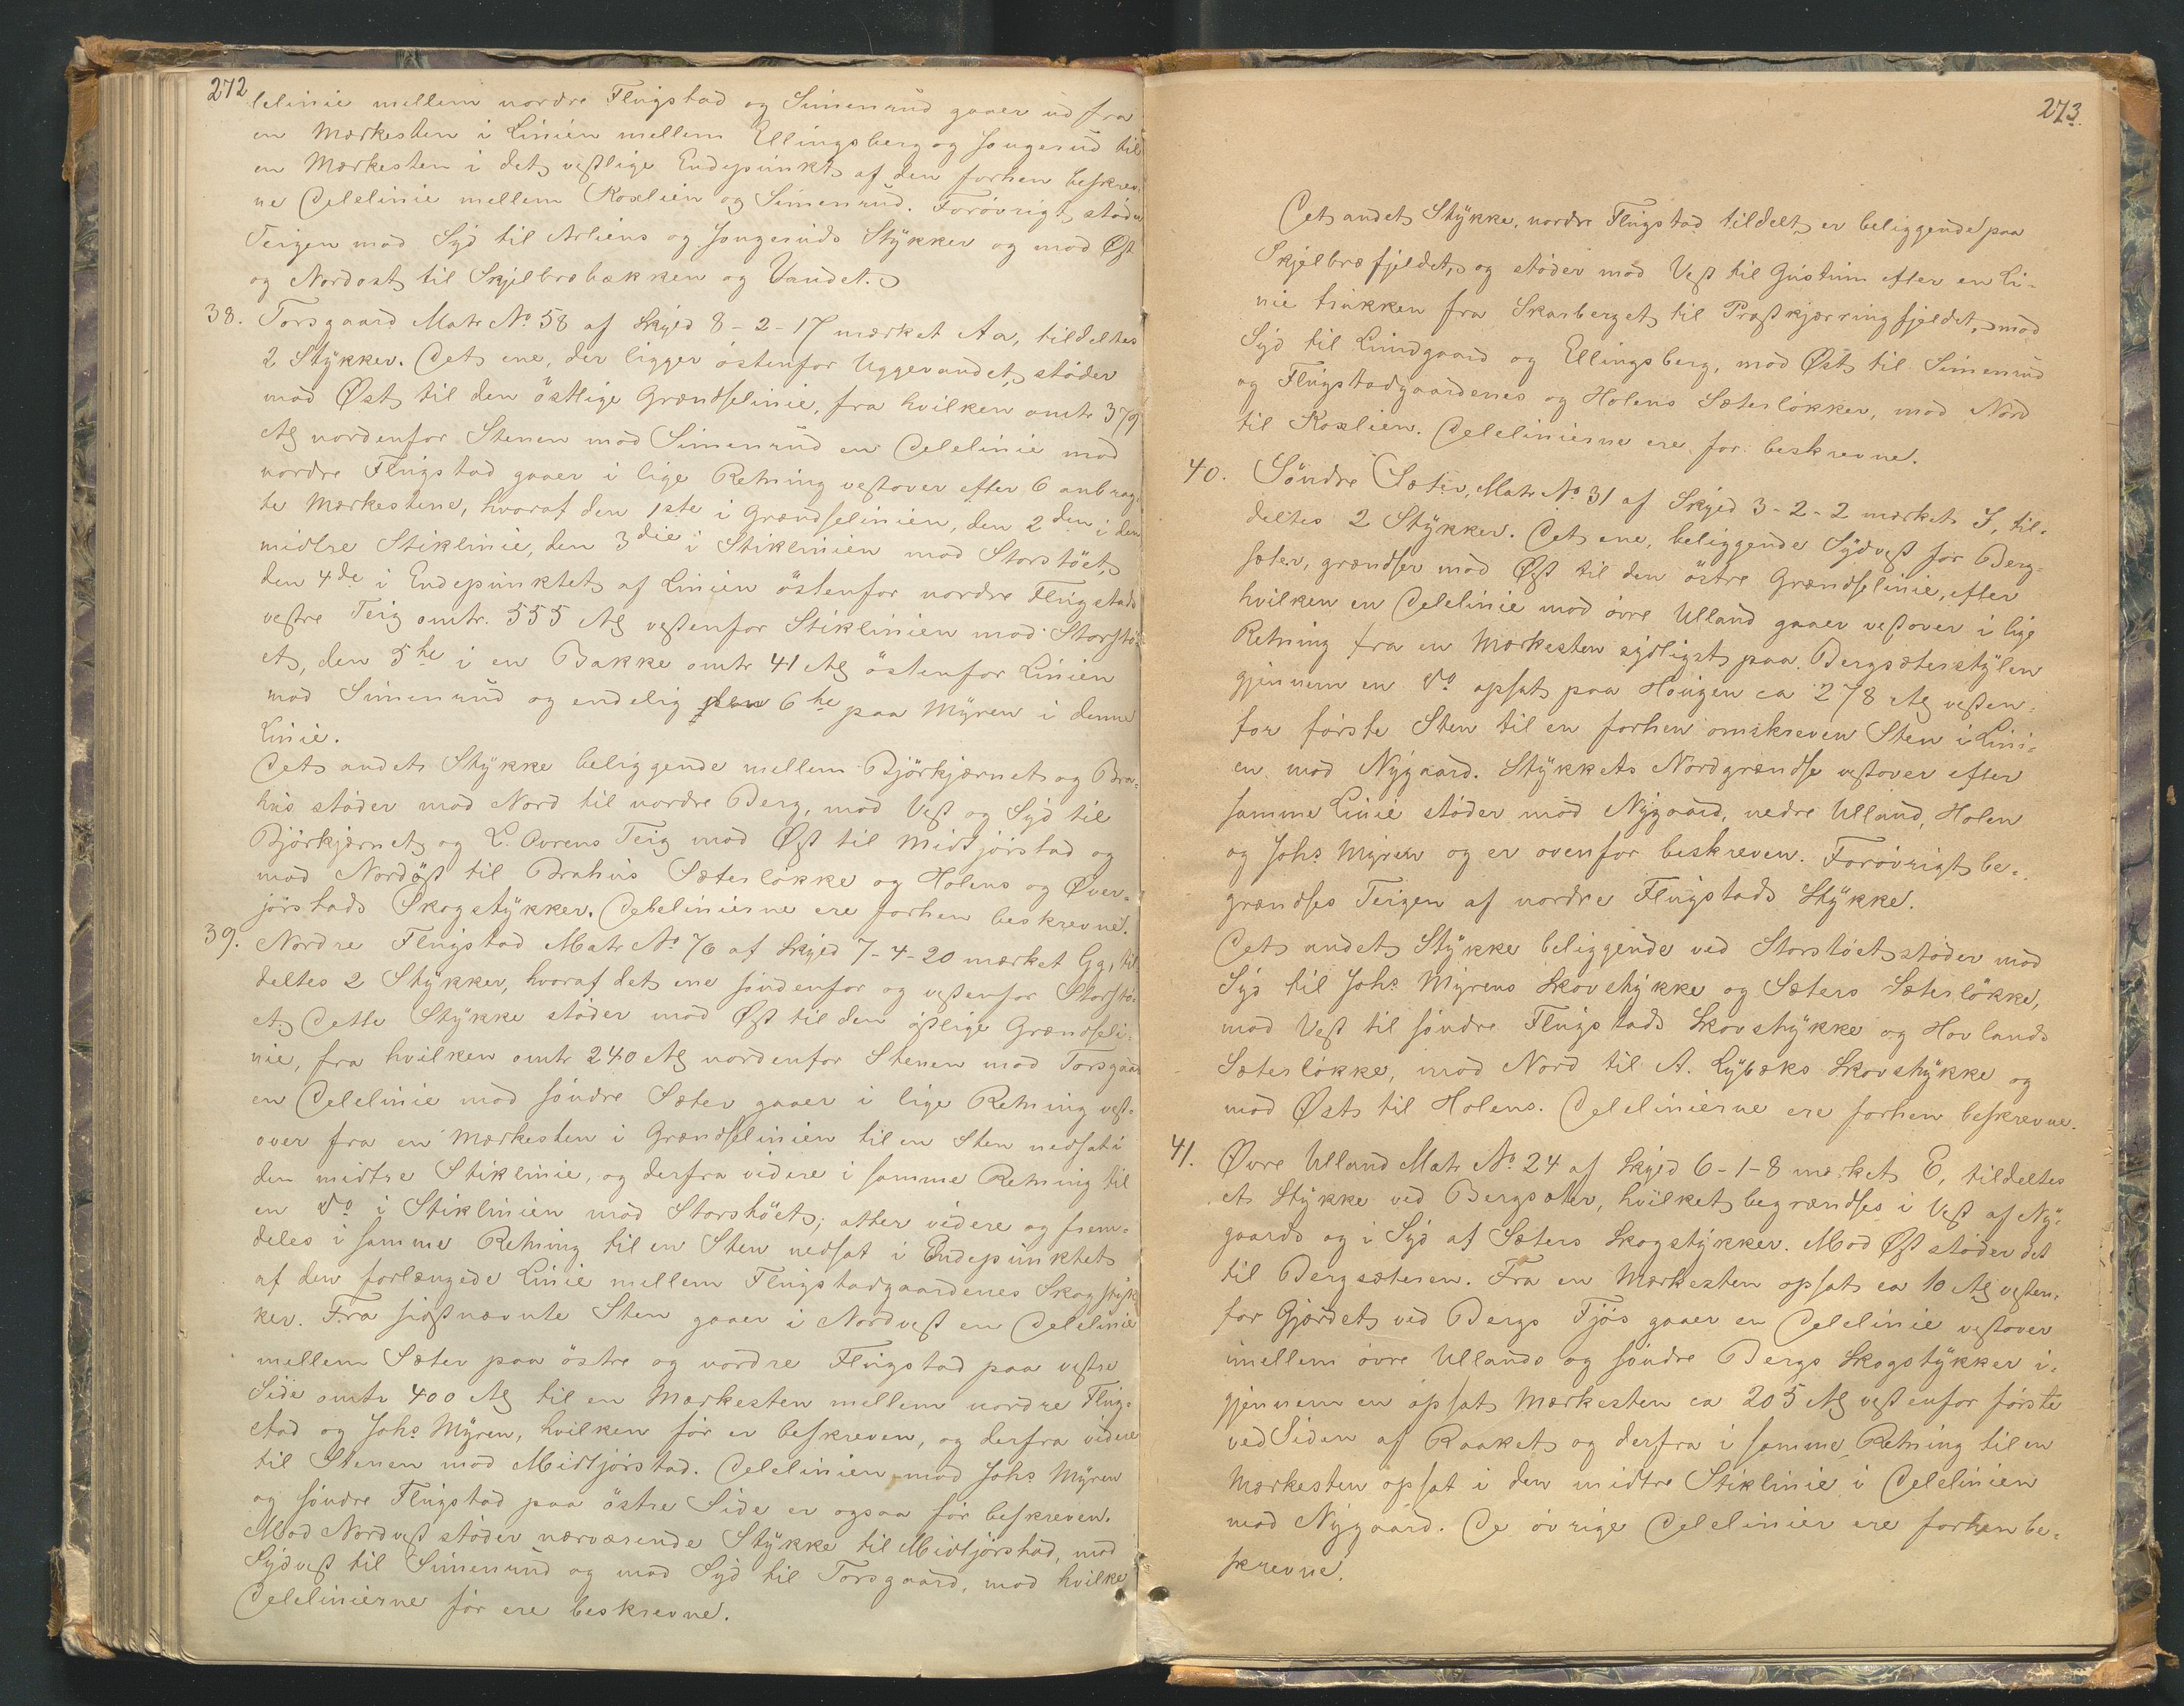 272
lelinie mellem nordre Flugstad og Simenrud gaaer ud fra
en Mærkesten i Linien mellem Ellingsberg og Jongerud til
en Mærkesten i det vestlige Endepunkt af den forhen beskrev-
ne Delelinie mellem Koxlien og Simenrud. Forøvrigt støder
Teigen mod Syd til Arliens og Jongeruds Stykker og mod Øst
og Nordost til Skjelbrobækken og Vandet.
38. Torsgaard Matr No 58 af Skyld 8-2-17 mærket Aa, tildeltes
2 Stykker. Det ene, der ligger østenfor Uggevandet, støder
mod Øst til den östlige Grændselinie, fra hvilken omtr 379
Al nordenfor Stenen mod Simenrud en Delelinie mod
nordre Flugstad gaaer i lige Retning vestover efter 6 anbrag-
te Mærkestene, hvoraf den 1ste i Grændselinien, den 2den i den
midtre Stiklinie, den 3die i Stiklinien mod Storstöet,
den 4de i Endepunktet af Linien östenfor nordre Flugstads
vestre Teig omtr. 555 Al vestenfor Stiklinien mod Storstö-
et, den 5te i en Bakke omtr 41 Al östenfor Linien
mod Simenrud og endelig den 6te paa Myren i denne
Linie.
Det andet Stykke beliggende mellem Björkjærnet og Bra-
hus støder mod Nord til nordre Berg, mod Vest og Syd til
Björkjærnet og L. Ovrens Teig mod Øst til Midtjørstad og
mod Nordöst til Brahus Sæterløkke og Holens og Øver-
jørstads Skogstykker. Delelinierne ere forhen beskrevne.
39. Nordre Flugstad Matr No 76 af Skyld 7-4-20 mærket Gg, til-
deltes 2 Stykker, hvoraf det ene söndenfor og vestenfor Storstö-
et. Dette Stykke støder mod Øst til den östlige Grændseli-
nie, fra hvilken omtr 240 Al nordenfor Stenen mod Torsgaar
en Delelinie mod söndre Sæter gaaer i lige Retning vest-
over fra en Mærkesten i Grændselinien til en Sten nedsat i
den midtre Stiklinie, og derfra videre i samme Retning til
en do i Stiklinien mod Storstöet; atter videre og frem-
deles i samme Retning til en Sten nedsat i Endepunktet
af den forlængede Linie mellem Flugstadgaardenes Skogstyk-
ker. Fra sidstnævnte Sten gaaer i Nordvest en Delelinie
mellem Sæter paa östre og nordre Flugstad paa vestre
Side omtr 400 Al til en Mærkesten mellem nordre Flug-
stad og Johs Myren, hvilken før er beskreven, og derfra videre
til Stenen mod Midtjørstad. Delelinien mod Johs Myren
og søndre Flugstad paa östre Side er ogsaa før beskreven.
Mod Nordvest støder nærværende Stykke til Midtjørstad, mod
Sydvest til Simenrud og mod Syd til Torsgaard, mod hvilke
Delelinierne før ere beskrevne.
273.
Det andet Stykke, nordre Flugstad tildelt, er beliggende paa
Skjelbrofjeldet, og støder mod Vest til Gustum efter en Li-
nie trukken fra Skarberget til Præstkjærringfjeldet, mod
Syd til Lundgaard og Ellingsberg, mod Øst til Simenrud
og Flugstadgaardenes og Holens Sæterløkker, mod Nord
til Koxlien. Delelinierne ere før beskrevne.
40. Söndre Sæter, Matr No 31 af Skyld 3-2-2 mærket I, til-
deltes 2 Stykker. Det ene, beliggende Sydvest for Berg-
sæter, grændser mod Øst til den östre Grændselinie, efter
hvilken en Delelinie mod övre Ulland gaaer vestover i lige
Retning fra en Mærkesten sydligst paa Bergsæterstylen
gjennem en do opsat paa Hougen ca 278 Al vesten-
for første Sten til en forhen omskreven Sten i Lini-
en mod Nygaard. Stykkets Nordgrændse vestover efter
samme Linie støder mod Nygaard, nedre Ulland, Holen
og Johs Myren og er ovenfor beskreven. Forøvrigt be-
grændses Teigen af nordre Flugstads Stykke.
Det andet Stykke beliggende ved Storstöet støder mod
Syd til Johs Myrens Skovstykke og Sæters Sæterløkke,
mod Vest til søndre Flugstads Skovstykke og Hovlands
Sæterløkke, mod Nord til A. Lybæks Skovstykke og
mod Øst til Holens. Delelinierne ere forhen beskrevne.
41. Øvre Ulland Matr No 24 af Skyld 6-1-8 mærket E, tildeltes
et Stykke ved Bergsæter, hvilket begrændses i Vest af Ny-
gaards og i Syd af Sæters Skogstykker. Mod Øst støder det
til Bergsæteren. Fra en Mærkesten opsat ca 10 Al vesten-
for Gjærdet ved Bergs Fjös gaaer en Delelinie vestover
imellem övre Ullands og søndre Bergs Skogstykker i-
gjennem en opsat Mærkesten ca 205 Al vestenfor første
ved Siden af Raaket og derfra i samme Retning til en
Mærkesten opsat i den midtre Stiklinie i Delelinien
mod Nygaard. De övrige Delelinier ere forhen be-
skrevne.